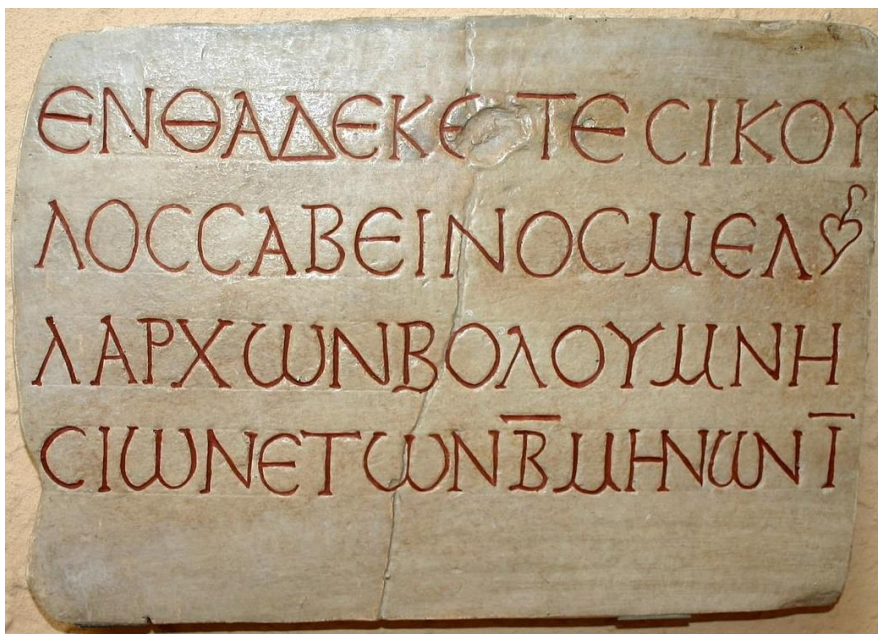 ΕΝΘΑΔΕΚΕΤΕϹΙΚΟΥ
ΛΟϹϹΑΒΕΙΝΟϹΜΕΛ
ΛΑΡΧΩΝΒΟΛΟΥΜΝΗ
ϹΙΩΝΕΤΩΝΒ̅ΜΗΝΩΝΙ̅